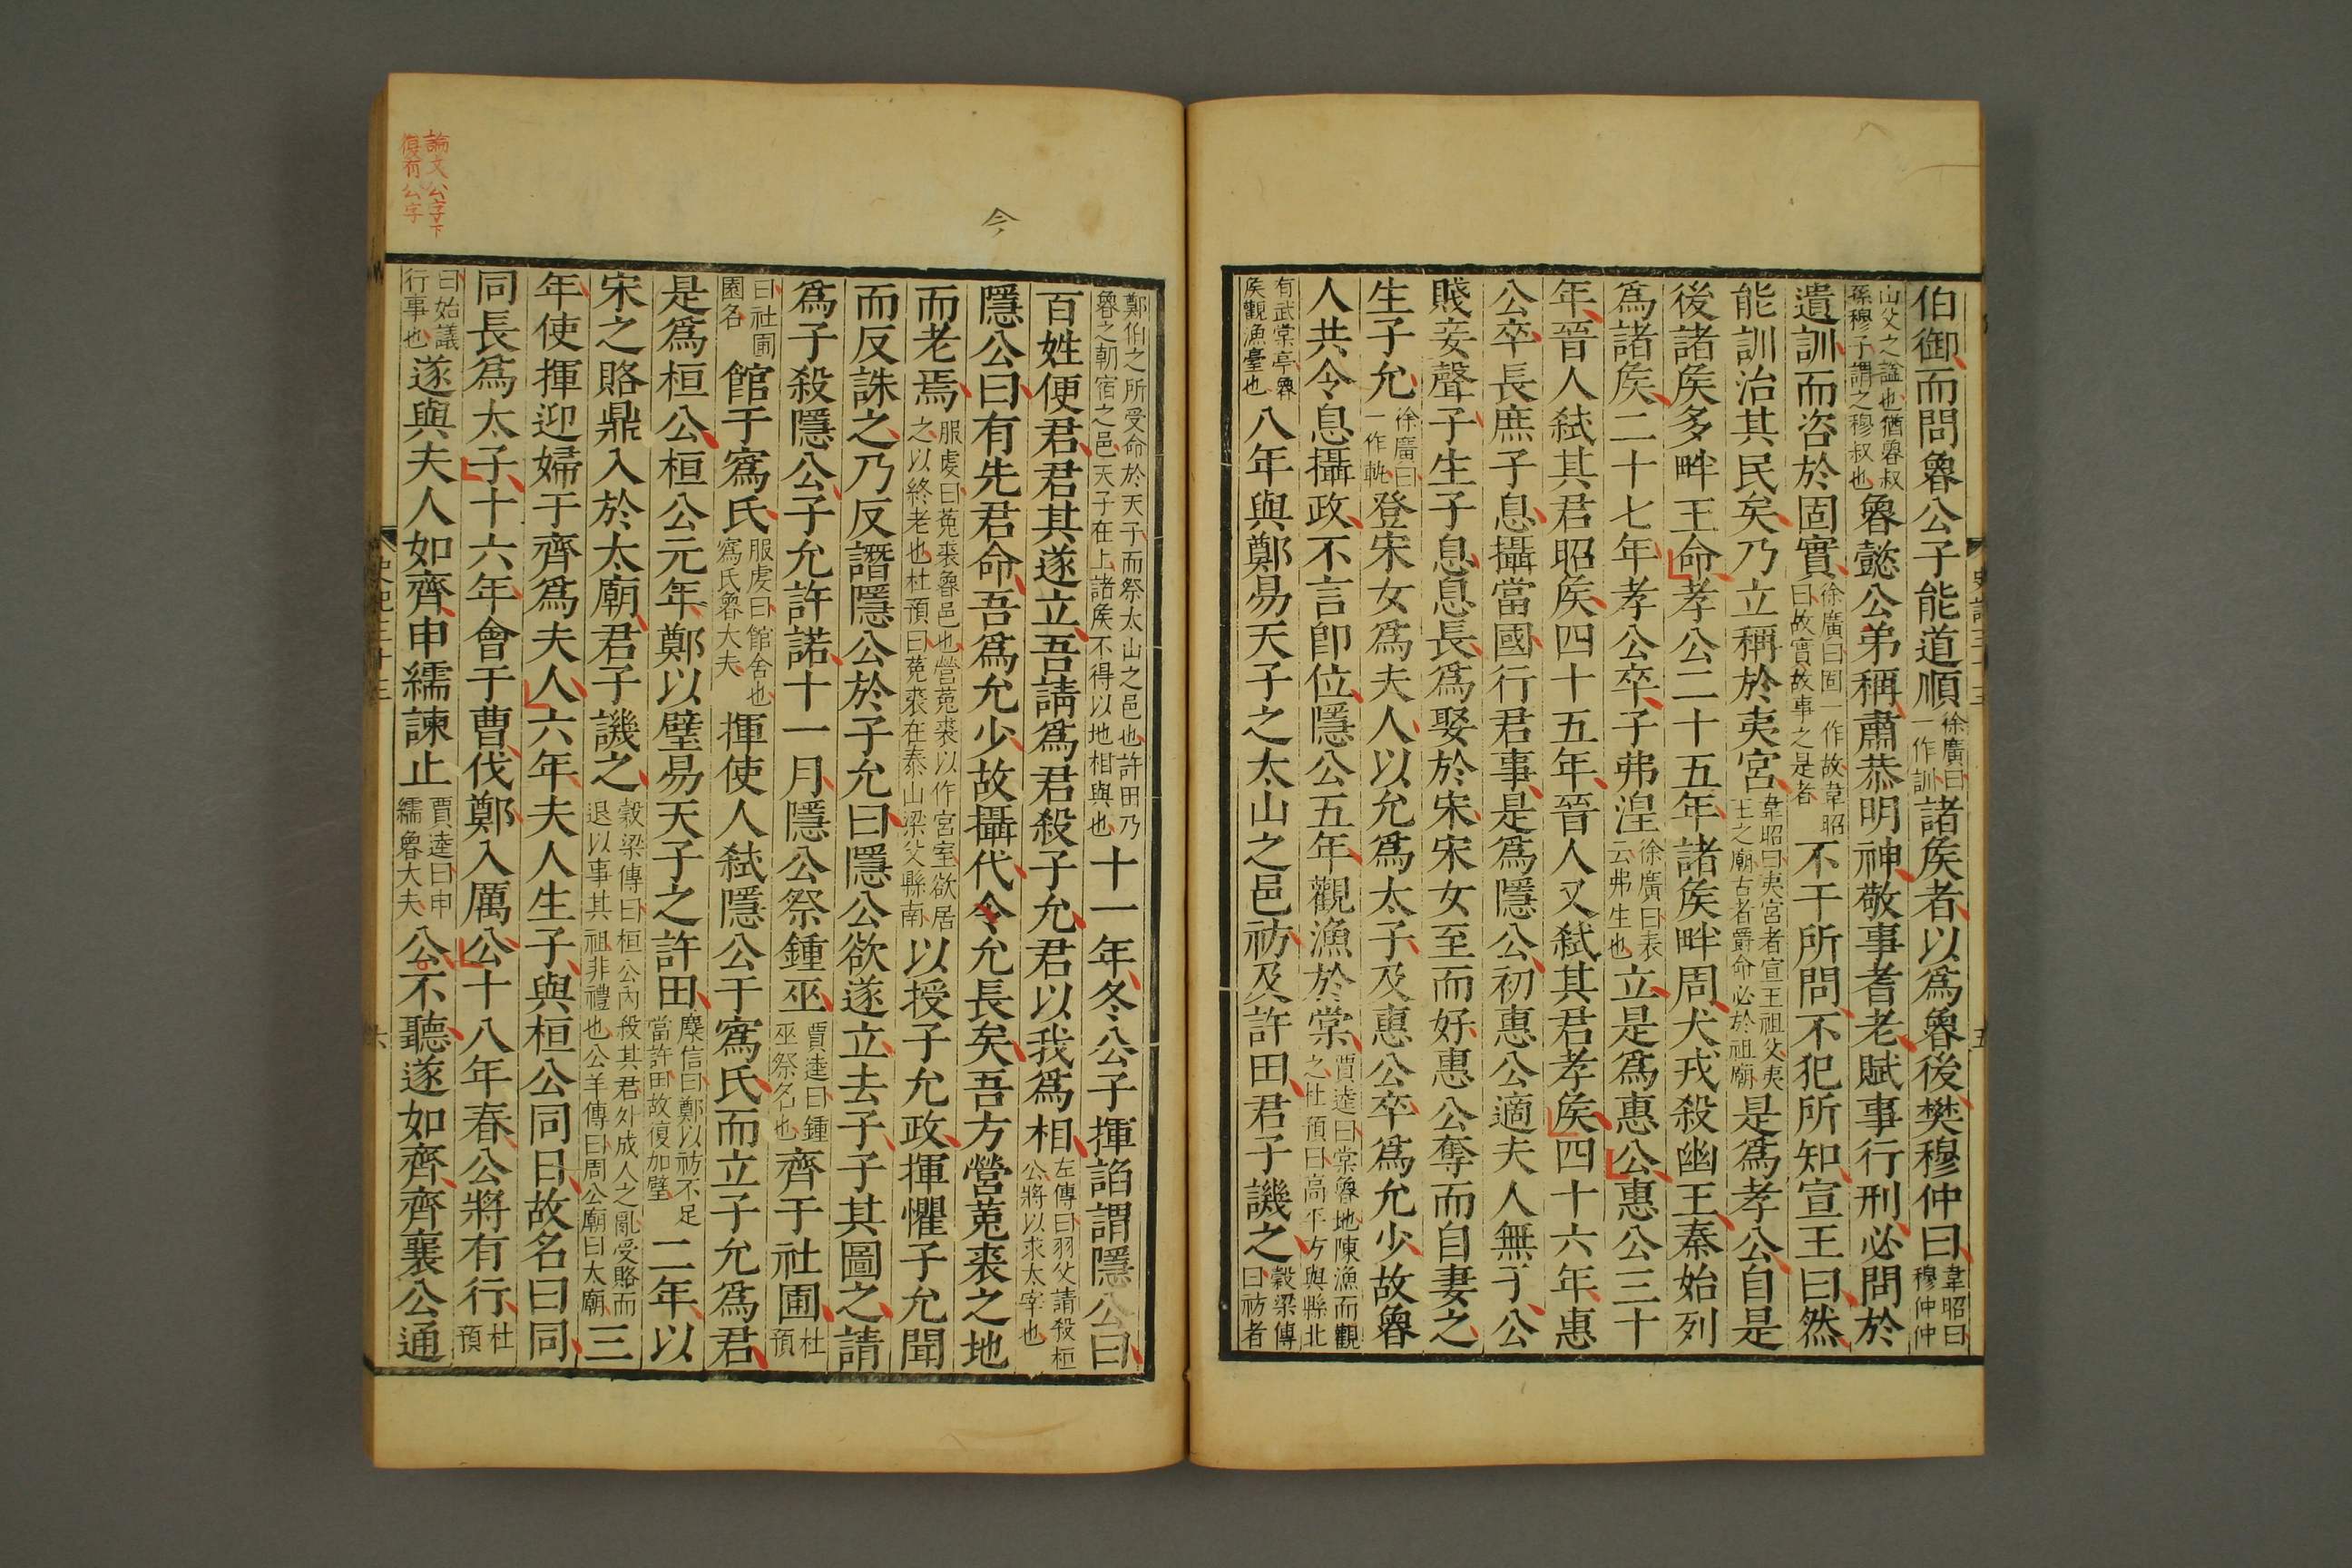 伯御而問魯公子能道順徐廣曰一作訓諸矦者以爲魯後樊穆仲曰韋昭曰穆仲仲
山父之謚也猶魯叔孫穆子謂之穆叔也魯懿公弟稱肅恭明神敬事耆老賦事行刑必問於
遺訓而咨於固實徐廣曰固一作故韋昭曰故實故事之是者不干所問不犯所知宣王曰然
能訓治其民矣乃立稱於夷宮韋昭曰夷宮者宣王祖父夷王之廟古者爵命必於祖廟是爲孝公自是
後諸矦多畔王命孝公二十五年諸矦畔周犬戎殺幽王秦始列
爲諸矦二十七年孝公卒子弗湟徐廣曰表云弗生也立是爲惠公惠公三十
年晉人弑其君昭矦四十五年晉人又弑其君孝矦四十六年惠
公卒長庶子息攝當國行君事是爲隱公初惠公適夫人無子公
賤妾聲子生子息息長爲娶於宋宋女至而好惠公奪而自妻之
生子允徐廣曰一作軌登宋女爲夫人以允爲太子及惠公卒爲允少故魯
人共令息攝政不言卽位隱公五年觀漁於棠賈逵曰棠魯地陳漁而觀之杜預曰高平方與縣北
有武棠亭魯矦觀漁臺也八年與鄭易天子之太山之邑祊及許田君子譏之穀梁傳曰祊者
史記三十三
五
今
鄭伯之所受命於天子而祭太山之邑也許田乃魯之朝宿之邑天子在上諸矦不得以地相與也十一年冬公子揮諂謂隱公曰
百姓便君君其遂立吾請爲君殺子允君以我爲相左傳曰羽父請殺桓公將以求太宰也
隱公曰有先君命吾爲允少故攝代令允長矣吾方營菟裘之地
而老焉服虔曰菟裘魯邑也營菟裘以作宮室欲居之以終老也杜預曰菟裘在泰山梁父縣南以授子允政揮懼子允聞
而反誅之乃反譖隱公於子允曰隱公欲遂立去子子其圖之請
爲子殺隱公子允許諾十一月隱公祭鍾巫賈逵曰鍾巫祭名也齊于社圃杜預
曰社圃園名館于寪氏服虔曰館舍也寪氏魯大夫揮使人弑隱公于寪氏而立子允爲君
是爲桓公桓公元年鄭以璧易天子之許田麋信曰鄭以祊不足當許田故復加璧二年以
宋之賂鼎入於太廟君子譏之穀梁傳曰桓公內殺其君外成人之亂受賂而退以事其祖非禮也公羊傳曰周公廟曰太廟三
年使揮迎婦于齊爲夫人六年夫人生子與桓公同日故名曰同
同長爲太子十六年會于曹伐鄭入厲公十八年春公將有行杜預
曰始議行事也遂與夫人如齊申繻諫止賈逵曰申繻魯大夫公不聽遂如齊齊襄公通
史記三十三
六
論文公字下
復有公字